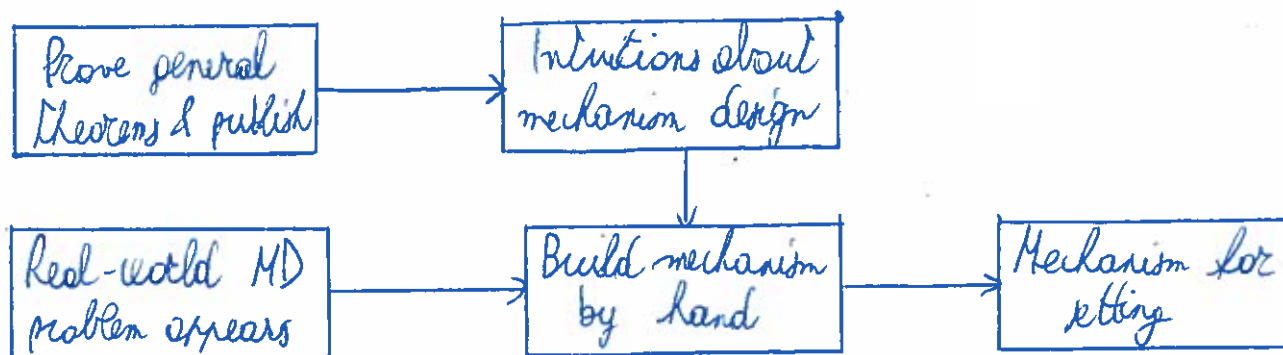 Prove general
Theorems & publish
Intuitions about
mechanism design
Real-world MD
problem appears
Build mechanism
by hand
Mechanism for
setting